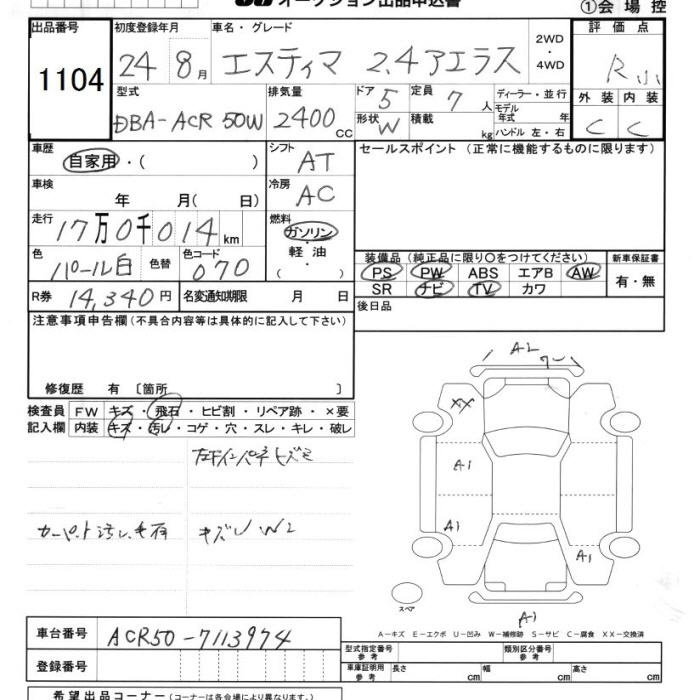 オークション出品申込書 ①会場控
出品番号 初度登録年月 車名・グレード 評価点
1104 24 8月 エスティマ 2.4アエラス 2WD・4WD R小
型式 排気量 ドア 5 定員 7人 ディーラー・並行 外装 内装
DBA-ACR50W 2400cc 形状 W 積載 kg モデル年式 年 ハンドル 左・右 C C
車歴 シフト セールスポイント (正常に機能するものに限ります)
自家用・( ) AT
車検 年 月( 日) 冷房 AC
走行 17万0千014km 燃料 ガソリン・軽油・( )
色 パール白 色替 色コード 070
装備品 (純正品に限り○をつけてください) 新車保証書
PS PW ABS エアB AW 有・無
SR ナビ TV カワ
R券 14,340円 名変通知期限 月 日 後日品
注意事項申告欄 (不具合内容等は具体的に記入して下さい)
修復歴 有 〔箇所 〕
検査員 FW キズ・飛石・ヒビ割・リペア跡・×要
記入欄 内装 キズ・汚レ・コゲ・穴・スレ・キレ・破レ
左
カーペット汚レ キズ W2
A2
XX
A1
A1
A1
A1
スペア
A−キズ E−エクボ U−凹み W−補修跡 S−サビ C−腐食 XX−交換済
車台番号 ACR50-7113974
型式指定番号 参考 類別区分番号 参考
登録番号 車庫証明用 参考 長さ cm 幅 cm 高さ cm
希望出品コーナー (コーナーは各会場により異なります。)